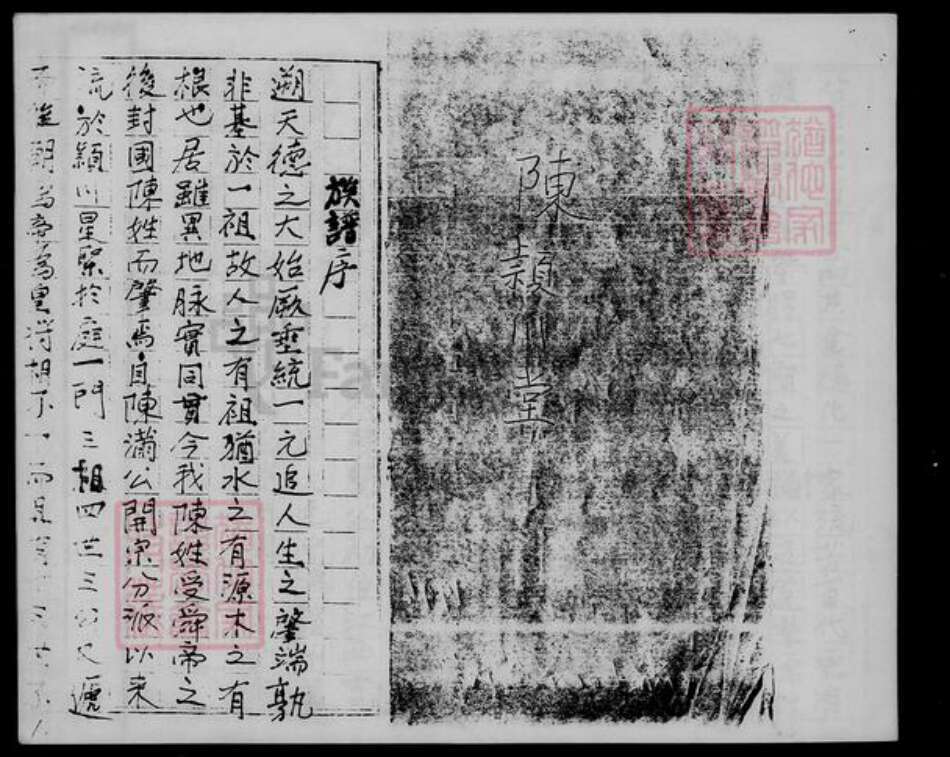 陳穎川堂
族譜序
遡天德之大始厥垂統一元追人生之肇端孰
非基於一祖故人之有祖猶水之有源木之有
根也居雖異地脉實同貫今我陳姓受舜帝之
後封國陳姓而肇焉自陳滿公開宗分派以来
流於穎川星聚於庭一門三相四世三公又遞
朝為帝為皇將相不一而